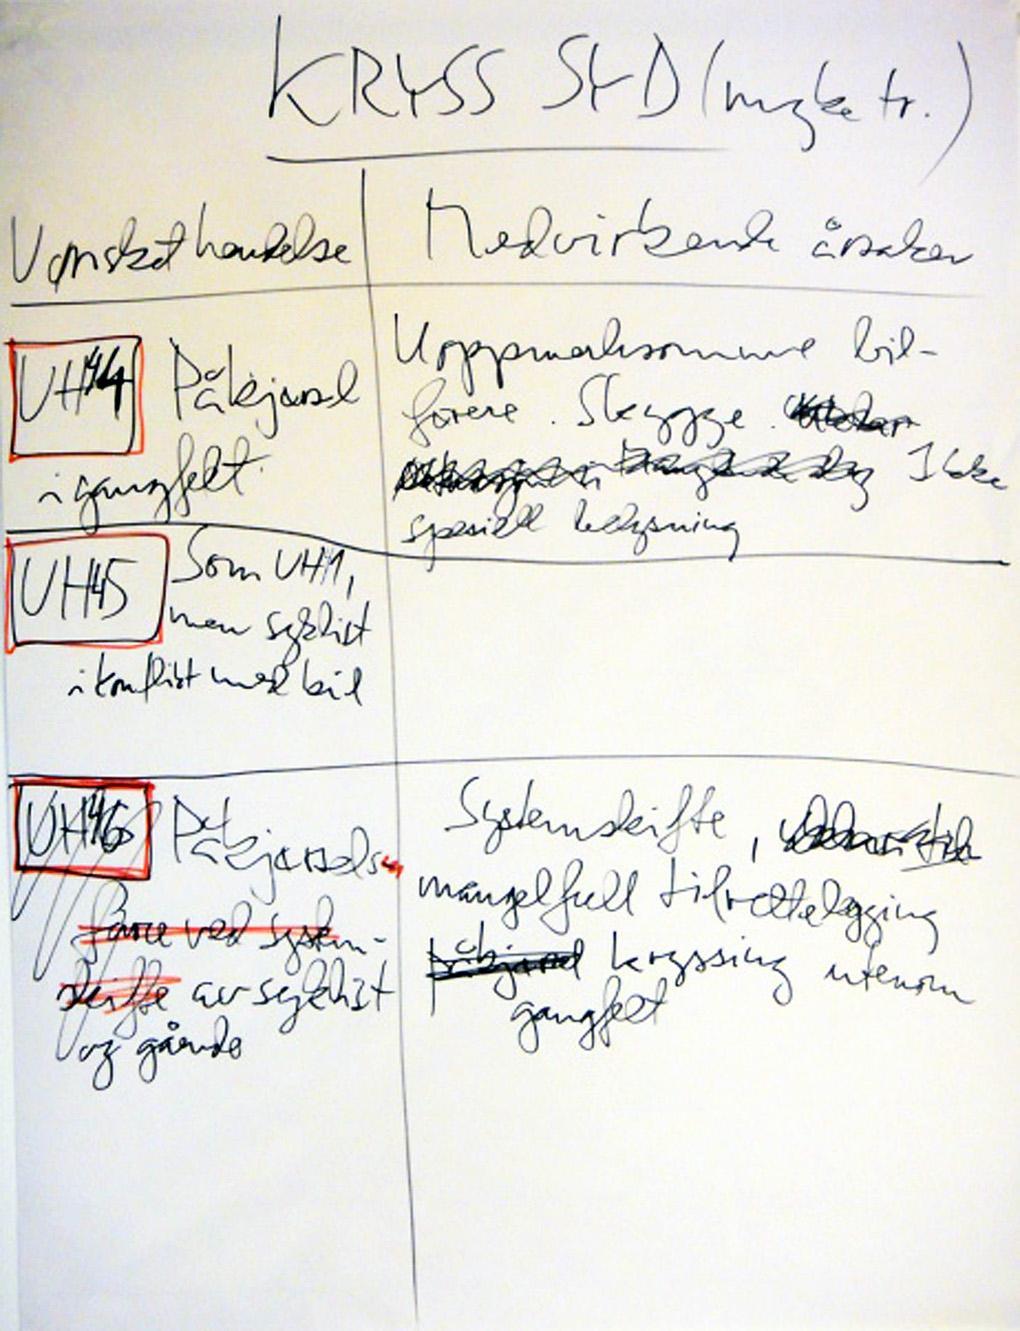 KRYSS SYD (myke tr.)
Uønsket hendelse
Medvirkende årsaker
UH44 Påkjørsel
i gangfelt.
Uoppmerksomme bil-
førere. Skygge.
Ikke
spesiell belysning
UH45 Som UH1,
men syklist
i konflikt med bil
UH46 Påkjørsels
fare ved system-
skifte av syklist
og gående
Systemskifte,
mangelfull tilrettelegging
påkjørsel kryssing utenom
gangfelt